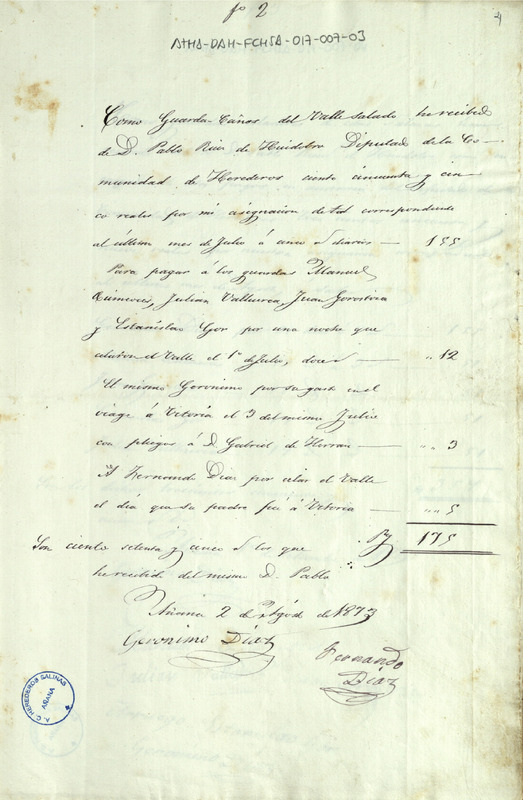 fº 2
4
ATHA-DAH-FCHSA-017-007-03
Como Guarda-Cañas del Valle salado he recibido
de D. Pablo Ruiz de Huidobro Diputado de la Co-
munidad de Herederos ciento cincuenta y cin-
co reales por mi asignacion de tal correspondiente
al último mes de Julio á cinco diarios — 155
Para pagar á los guardas Manuel
Julian Juan
y Estanislao por una noche que
el Valle el 1º de Julio, doce — " 12
Al mismo Geronimo por su gasto en el
viage á Vitoria el 3 del mismo Julio
con pliegos á D. Gabriel de Herran — " " 3
A Fernando Diaz por celar el Valle
el dia que su padre fué á Vitoria — " " 5
Son ciento setenta y cinco los que 175
he recibido del mismo D. Pablo
Añana 2 de Agto de 1873
Geronimo Diaz
Fernando
Diaz
A. C. HEREDEROS SALINAS
AÑANA